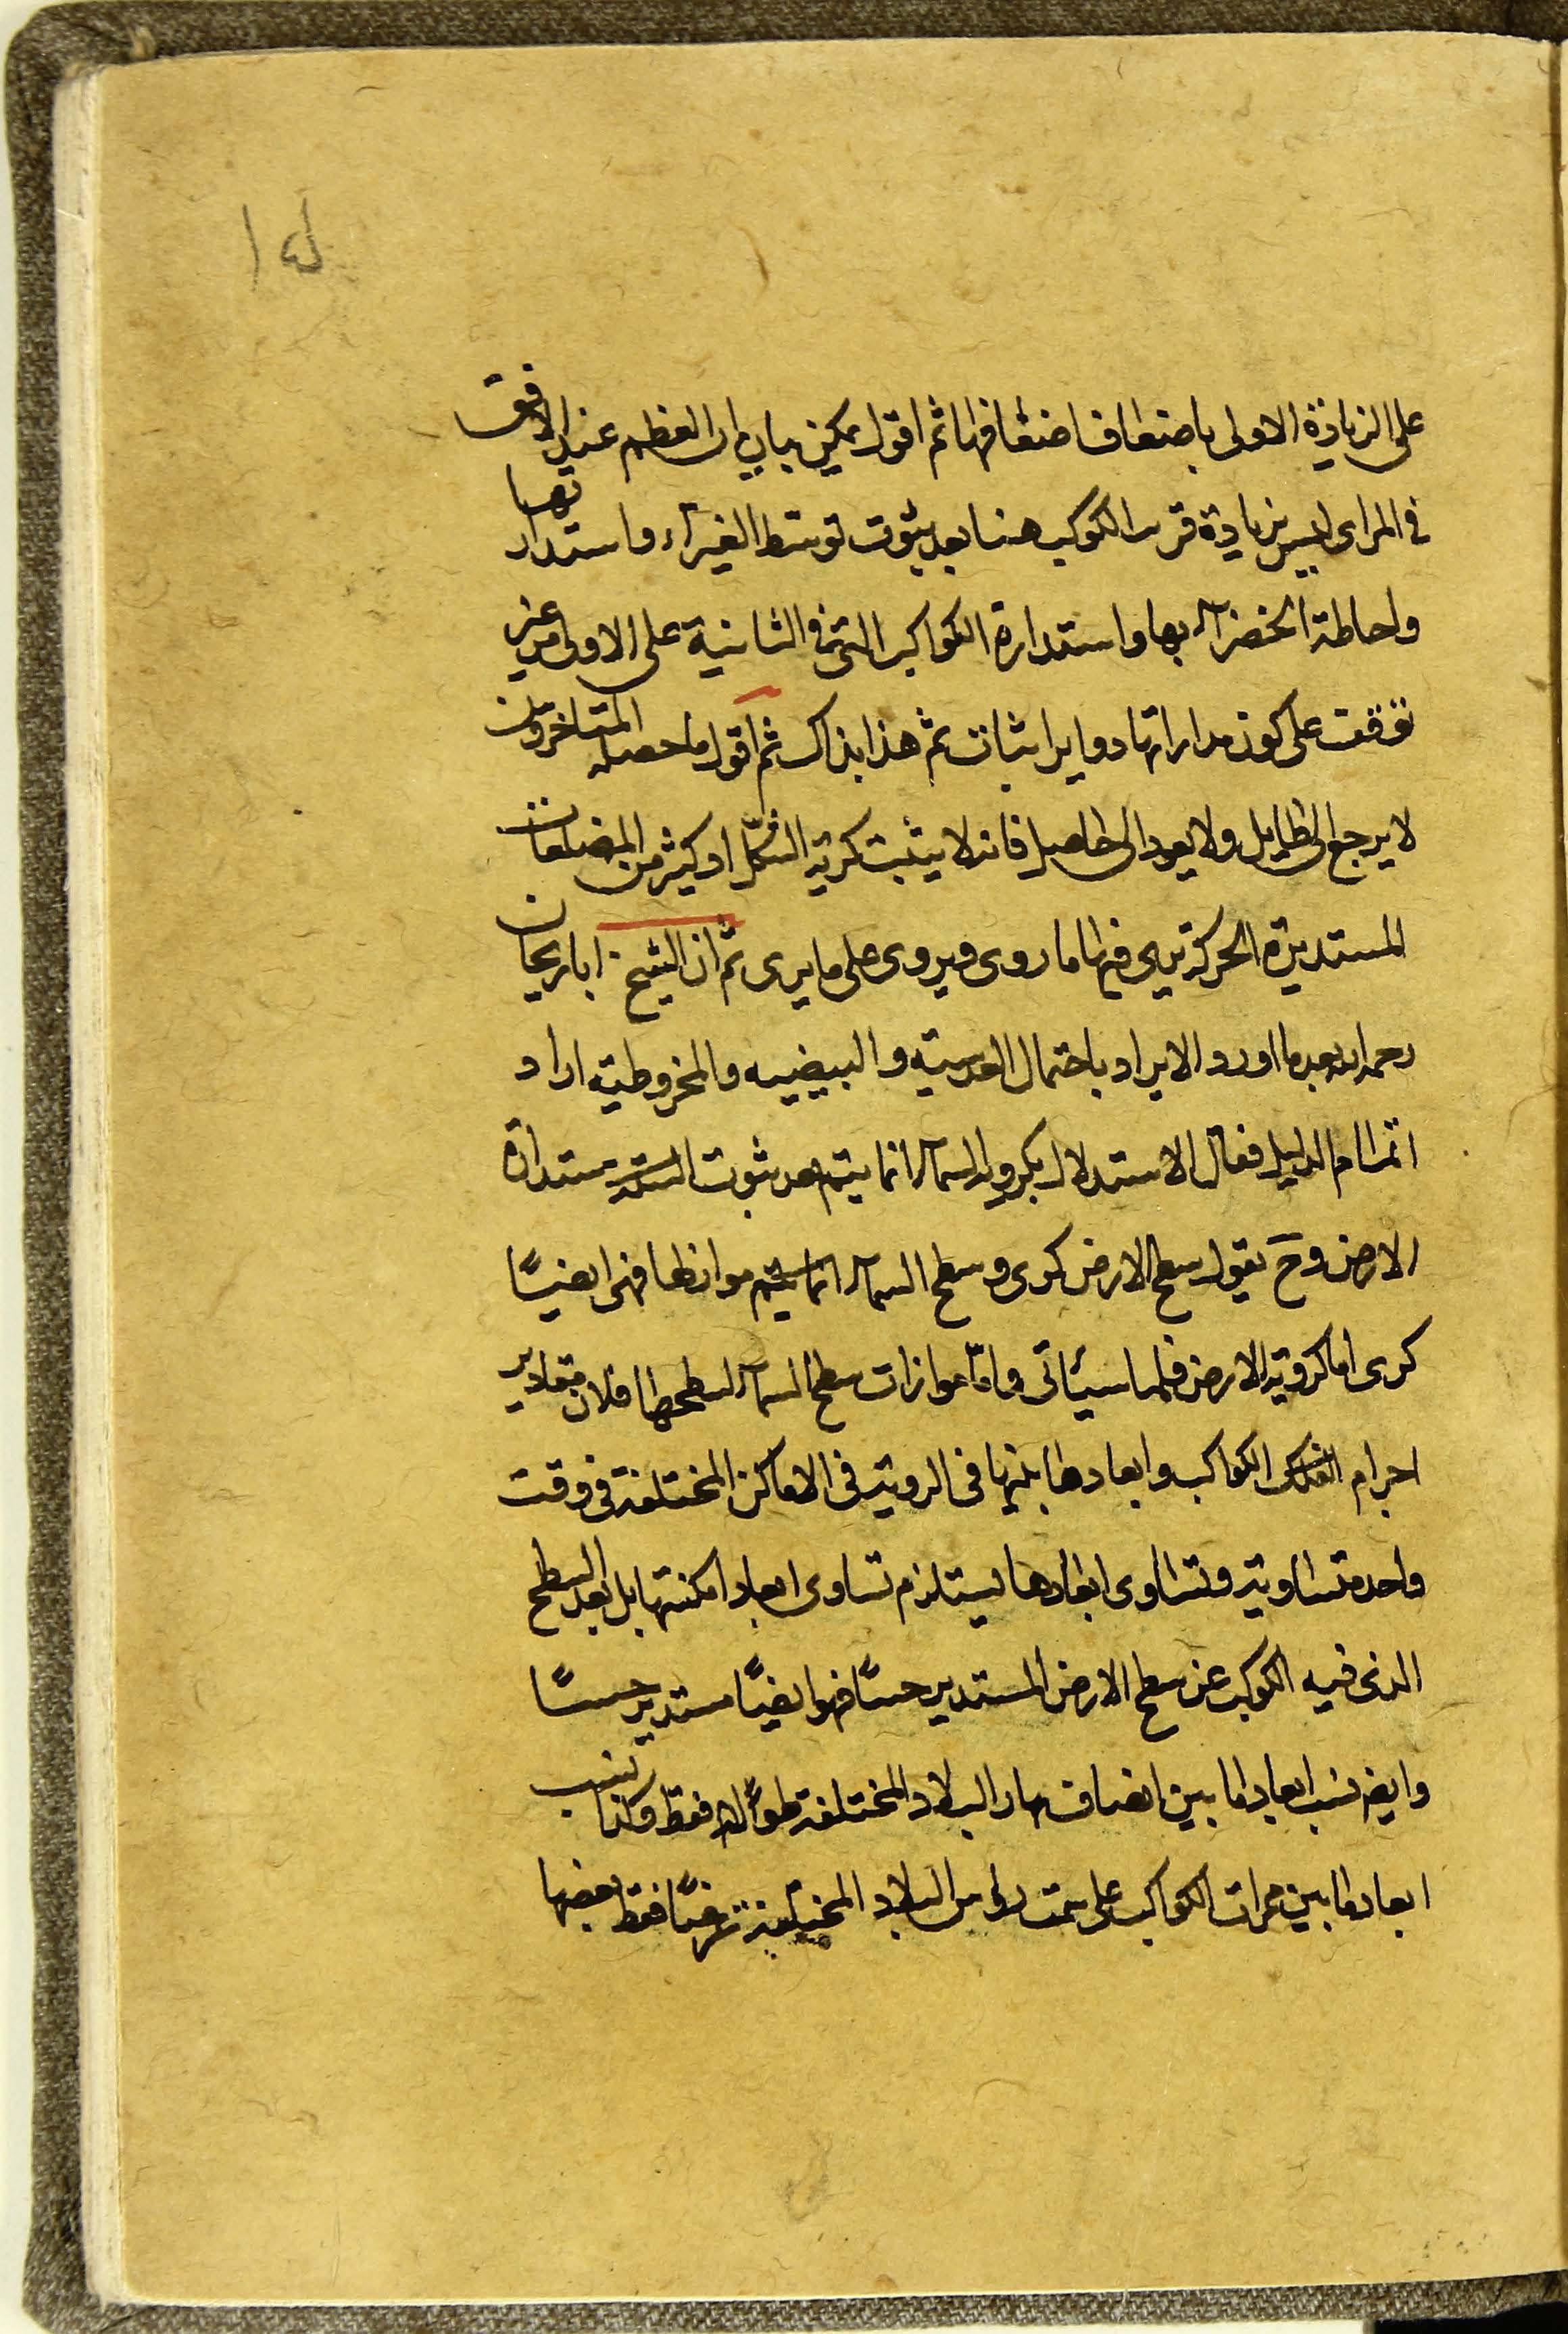 على الزيادة الاولى باضعاف اضعافها ثم اقول يمكن بيان ان العظم عند الافق
فى المراى ليس زيادة قرب الكوكب هنا بعد ثبوت توسط الغبرآء واستدارتها
واحاطة الخضرآء بها واستدارة الكواكب التى فى الثانية على الاولى من غير
توقف على كون مداراتها دواير اثبات ثم هذا بذاك ثم اقول ما حصله المتاخرون
لا يرجع الى طايل ولا يعود الى حاصل فانه لا يثبت كرية الشكل اذ كثير من المضلعات
المستديرة الحركة يرى فيها ما روى ويروى على ما يرى ثم ان الشيخ ابا ريحان
رحمه الله بعد ما اورد الايراد باحتمال العدسية والبيضيه والمخروطية اراد
اتمام الدليل فقال الاستدلال بكروية السمآء انما يتم بعد ثبوت استدارة
الارض وح نقول سطح الارض كرى وسطح السمآء انما موازيها فهى ايضًا
كرى اما كروية الارض فلما سياتى واما موازات سطح السمآء لسطحها فلان مقادير
اجرام الكواكب وابعادها بينها فى الروية فى الاماكن المختلفة فى وقت
واحد متساوية وتساوى ابعادها يستلزم تساوى ابعاد امكنتها بل ابعد السطح
الذى فيه الكوكب عن سطح الارض المستدير حسًّا فهو ايضًا مستدير حسًّا
وايض نسب ابعاد ما بين انصاف نهار البلاد المختلفة طولًا فقط وكذا نسب
ابعاد ما بين ممرات الكواكب على سمت رؤس البلاد المختلفة عرضًا فقط بعضها